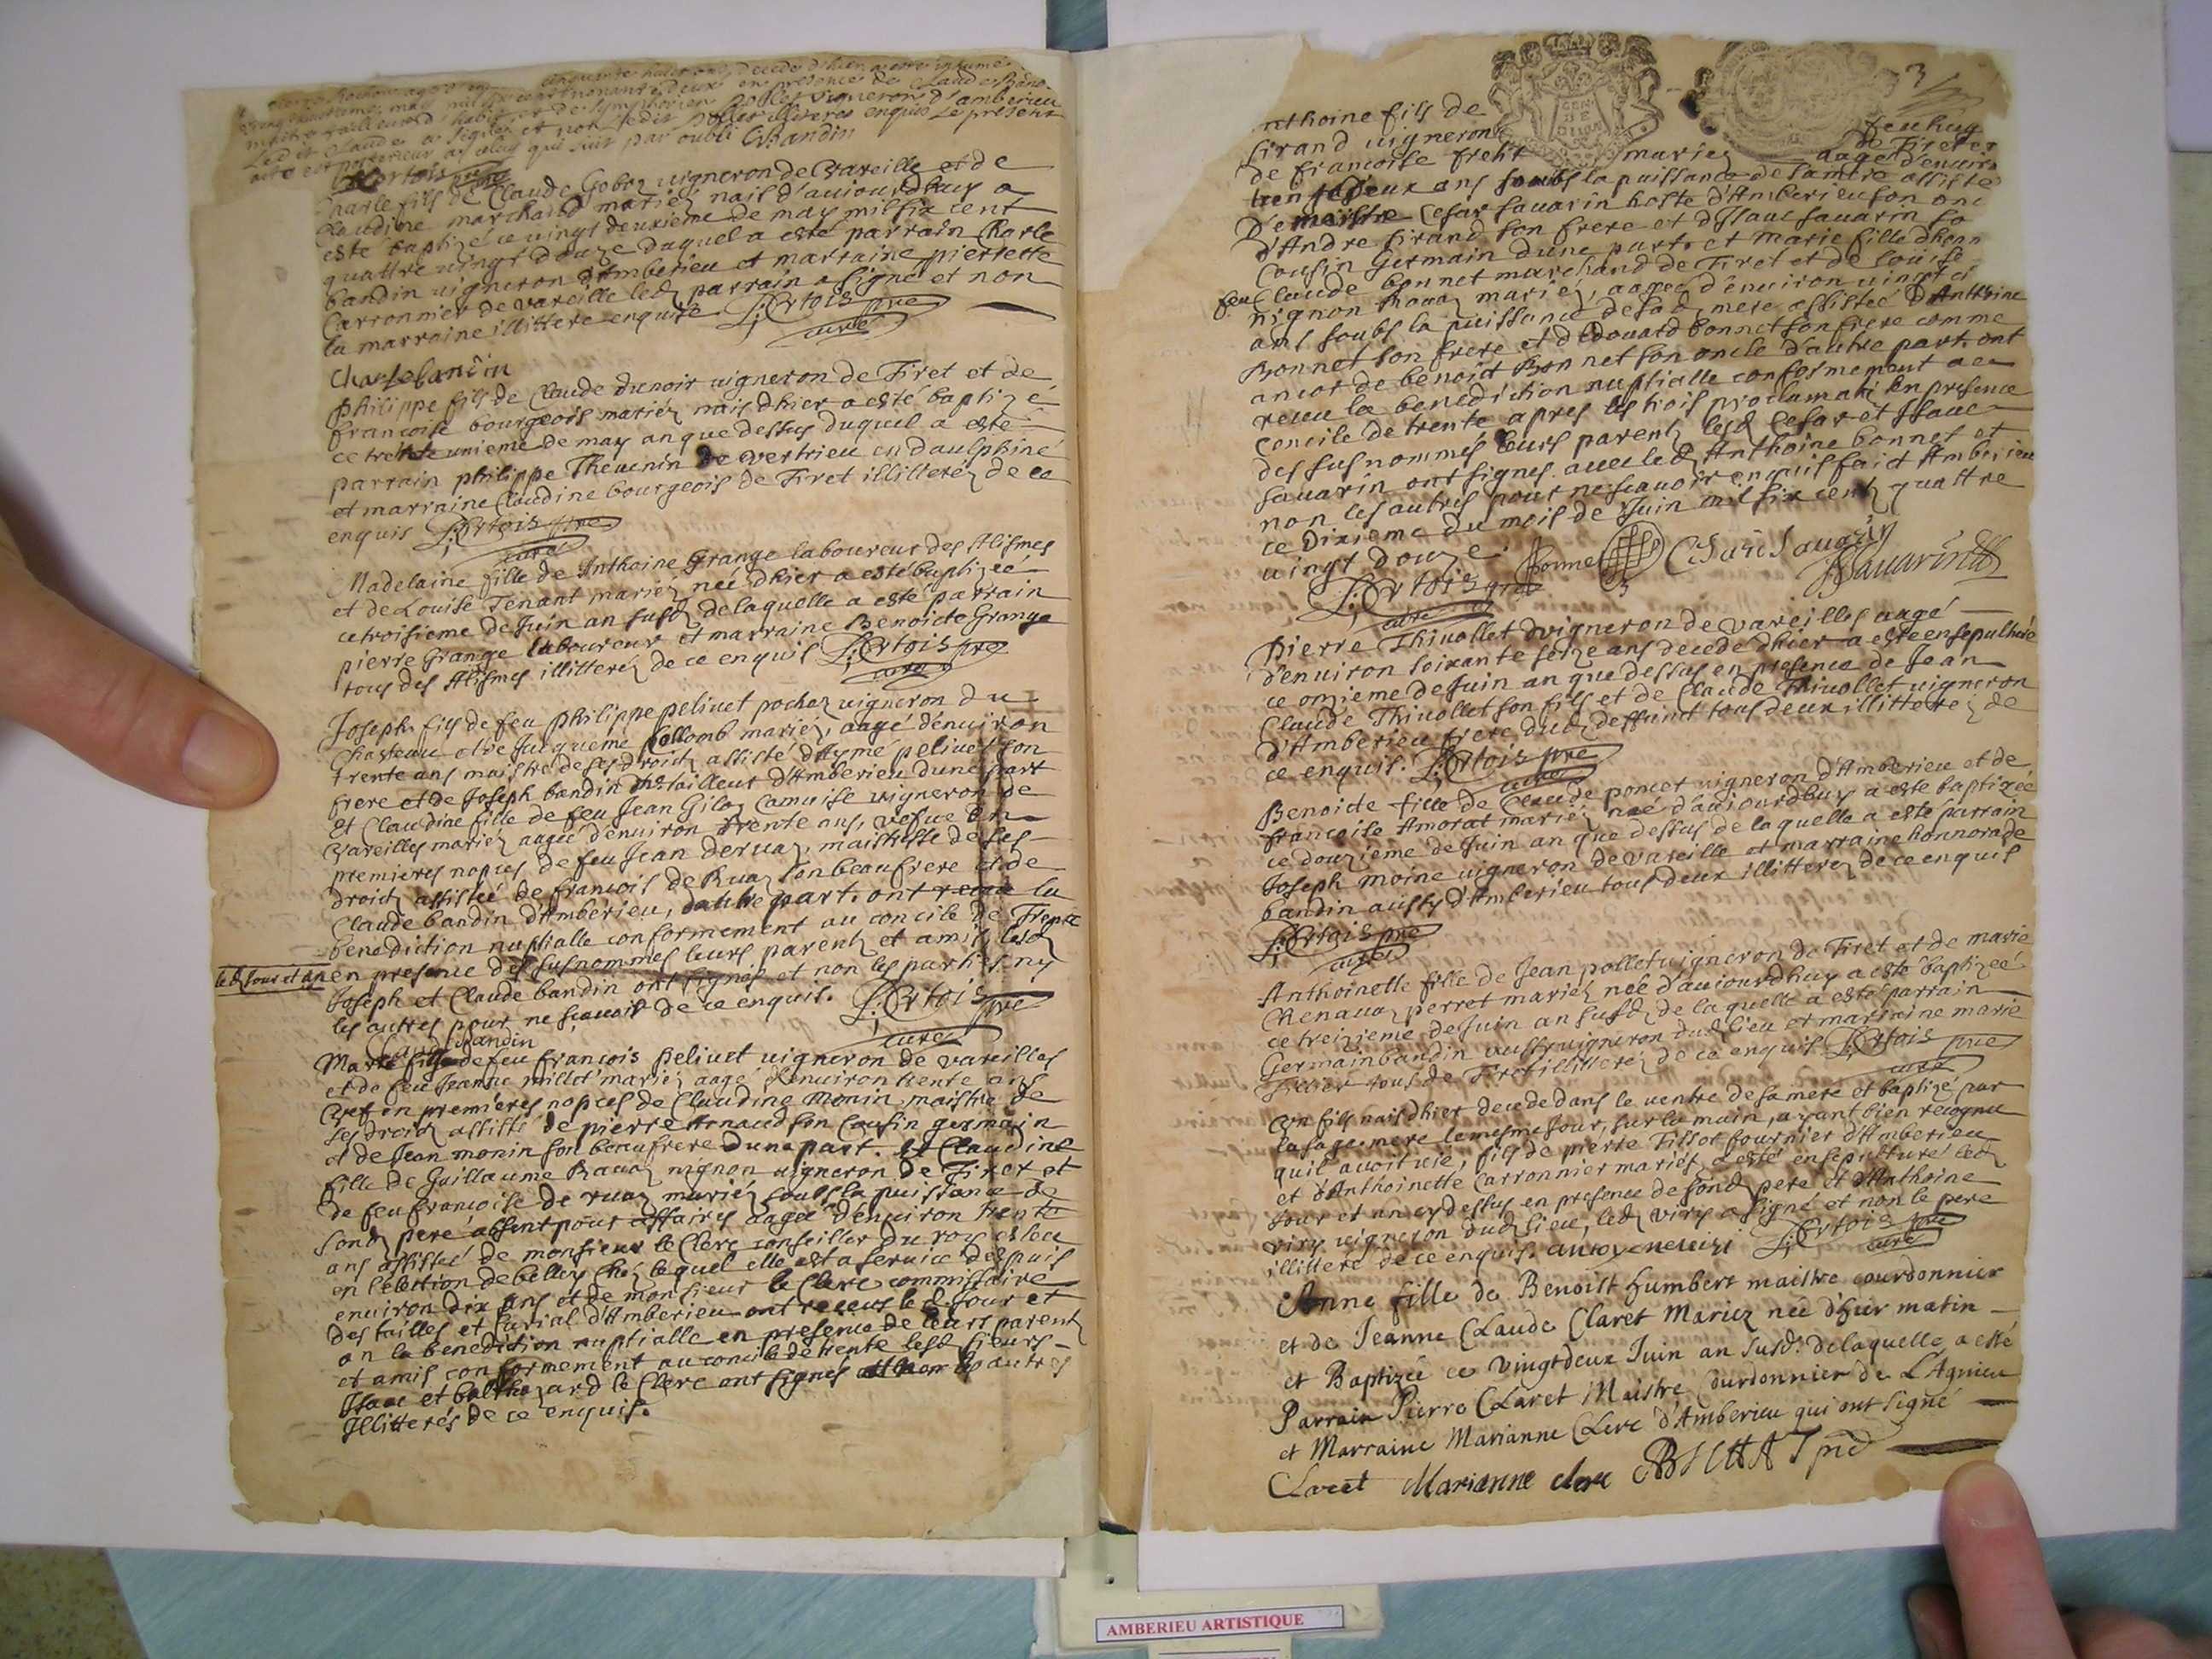 cinquante huict ans decede d'hier a esté inhumé
vingt huictieme may mil six cent nonante deux en presence de Claude Bandin
maitre tailleur d'habit et de Symphorien Pollet vigneron d'amberieu
Led it Claude a signé et non ledit Pollet illiteré enquis Le present
acte est posterieur a celuy qui suit par oubli C Bandin
L: Ortois pre
Charle fils de Claude Goboz vigneron de Vareille et de
Claudine marchand mariéz nais d'auiourdhuy a
esté baptizé ce vingt deuxieme de may mil six cent
quattre vingt douze duquel a esté parrain Charle
bandin vigneron d'Amberieu et marraine pierrette
Carronnier de vareille led parrain a signé et non
la marraine illittere enquise L: Ortois pre
curé
Charle bandin
Philippe fils de Claude dunoir vigneron de Tiret et de
francoise bourgeois mariéz nais dhier a esté baptizé
ce trente unieme de may an que dessus duquel a esté
parrain philippe Theuenin de vertrieu en daulphiné
et marraine Claudine bourgeois de Tiret illitteréz de ce
enquis L: Ortois pre
curé
Madelaine fille de Anthoine Grange laboureur des Alismes
et de Louise Tenant mariéz née dhier a esté baptizee
ce troisieme de Juin an susd delaquelle a esté parrain
pierre Grange laboureur et marraine Benoiste Grange
tous des Alismes illitteréz de ce enquis L: Ortois pre
curé
Joseph fils de feu philippe peliuet pochoz vigneron du
Chasteau et de Jacqueme Collomb mariéz, aagé d'enuiron
trente ans maistre de ses droictz assisté d'Aymé peliuet son
frere et de Joseph bandin me tailleur d'Amberieu dune part
Et Claudine fille de feu Jean Giloz Camuise vigneron de
Vareilles mariéz aagée d'enuiron trente ans, vefue en
premieres nopces de feu Jean deruaz, maistresse de ses
droictz assistée de francois de Ruaz son beaufrere et de
Claude bandin d'Amberieu, dautre part. ont receu la
benediction nuptialle conformement au concile de Trente
led Jour et an en presence des susnommes leurs parentz et amis, lesd
Joseph et Claude bandin ont signés et non les parties ny
les autres pour ne scauoir de ce enquis. L: Ortois pre
Claude Bandin curé
Marc fils de feu francois peliuet vigneron de vareilles
et de feu Jeanne millet mariéz aagé d'enuiron trente ans
Vef en premieres nopces de Claudine Monin, maistre de
ses droictz assisté de pierre Arnaud son Cousin germain
et de Jean monin son beaufrere dune part. Et Claudine
fille de Guillaume Rauaz nignon vigneron de Tiret et
de feu francoise de ruaz mariéz soubs la puissance de
sond pere absent pour affaires aagée d'enuiron trente
ans assistée de monsieur le Clerc conseiller du roy esleu
en l'election de belley chéz lequel elle est a seruice despuis
enuiron dix ans et de monsieur le Clerc commissaire
des tailles et Curial d'Amberieu ont receus led Jour et
an la benediction nuptialle en presence de leurs parentz
et amis conformement au concile de trente lesd sieurs
Isaac et balthazard le Clerc ont signés et non les autres
Illitterés de ce enquis.
3
Anthoine fils de feu huy
sirand vigneron de Tiret et
de francoise frelit mariéz aagé d'enuiron
trente deux ans soubs la puissance de sa mere assisté
De maistre Cesar sauarin hoste d'Amberieu son oncle
d'Andre sirand son frere et d'Isaac sauarin so
Cousin Germain dune part. et marie fille d'hon
feu Claude bonnet marchand de Tiret et de Louise
nignon Rauaz mariéz, aagée d'enuiron uingt et
ans soubs la puissance de sad mere assistée d'Anthoine
Bonnet son frere et d'edouard bonnet son frere comme
ancor de benoist Bonnet son oncle d'autre part. ont
receu la benediction nuptialle conformement au
concile de trente apres les trois proclamati En presence
des susnommés leurs parentz lesd Cesar et Isaac
sauarin ont signés auec led Anthoine bonnet et
non les autres pour ne scauoir enquis faict Amberieu
ce Dixieme du mois de Juin mil six centz quattre
uingt douze. Bonnet Cesard Sauarin
L: Ortois pre Sauarin
curé
Pierre Thiuollet vigneron de vareilles aagé
d'enuiron soixante seize ans decede dhier a esté ensepulturé
ce onzieme de Juin an que dessus en presence de Jean
Claude Thiuollet son fils et de Claude Thiuollet vigneron
d'Amberieu frere dud deffunct tous deux illitteréz de
ce enquis. L: Ortois pre
curé
Benoicte fille de Claude poncet vigneron d'Amberieu et de
francoise Amorat mariéz née d'auiourdhuy a esté baptizée
ce douzieme de Juin an que dessus de laquelle a esté parrain
Joseph moine vigneron de vareille et marraine honnorade
bandin aussy d'Amberieu tous deux illitteréz de ce enquis
L: Ortois pre
curé
Anthoinette fille de Jean pollet vigneron de Tiret et de marie
Chenauaz perret mariéz née d'auiourdhuy a esté baptizée
ce treizieme de Juin an susd de laquelle a esté parrain
Germain bandin aussy vigneron dud lieu et marraine marie
Tillier tous de Tiret illitteréz de ce enquis L: Ortois pre
curé
Un fils nais dhier decede dans le ventre de sa mere et baptizé par
la sage mere le mesme Jour, sur la main, ayant bien recognu
quil auoit vie, fils de pierre Tissot fournier d'Amberieu
et d'Anthoinette Carronnier mariéz, a esté ensepulturé led
Jour et an cy dessus en presence de sond pere et d'Anthoine
viry vigneron dud lieu, led viry a signé et non le pere
illitteré de ce enquis. L: Ortois pre
curé
Anne fille de Benoist humbert maistre courdonnier
et de Jeanne Claude Claret Mariez née d'hier matin
et Baptizée ce vingt deux Juin an susd. delaquelle a esté
Parrain Pierre Claret Maistre Courdonnier de L'Agnieu
et Marraine Marianne Clerc d'Amberieu qui ont signé
Claret Marianne clerc
AMBERIEU ARTISTIQUE